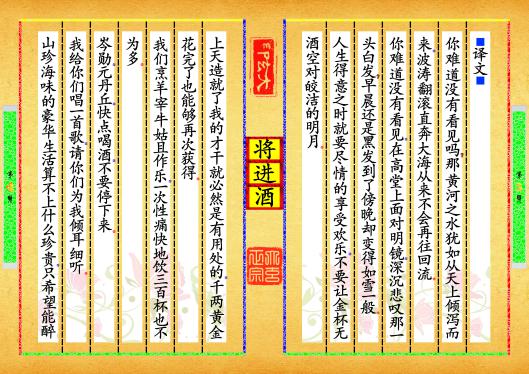 译文
你难道没有看见吗,那黄河之水犹如从天上倾泻而
来波涛翻滚直奔大海从来不会再往回流
你难道没有看见在高堂上面对明镜,深沉悲叹那一
头白发,早晨还是黑发到了傍晚却变得如雪一般
人生得意之时就要尽情的享受欢乐,不要让金杯无
酒空对皎洁的明月
将进酒
上天造就了我的才干就必然是有用处的,千两黄金
花完了也能够再次获得
我们烹羊宰牛姑且作乐,一次性痛快地饮三百杯也不
为多
岑勋,元丹丘,快点喝酒,不要停下来
我给你们唱一首歌,请你们为我倾耳细听
山珍海味的豪华生活算不上什么珍贵,只希望能醉